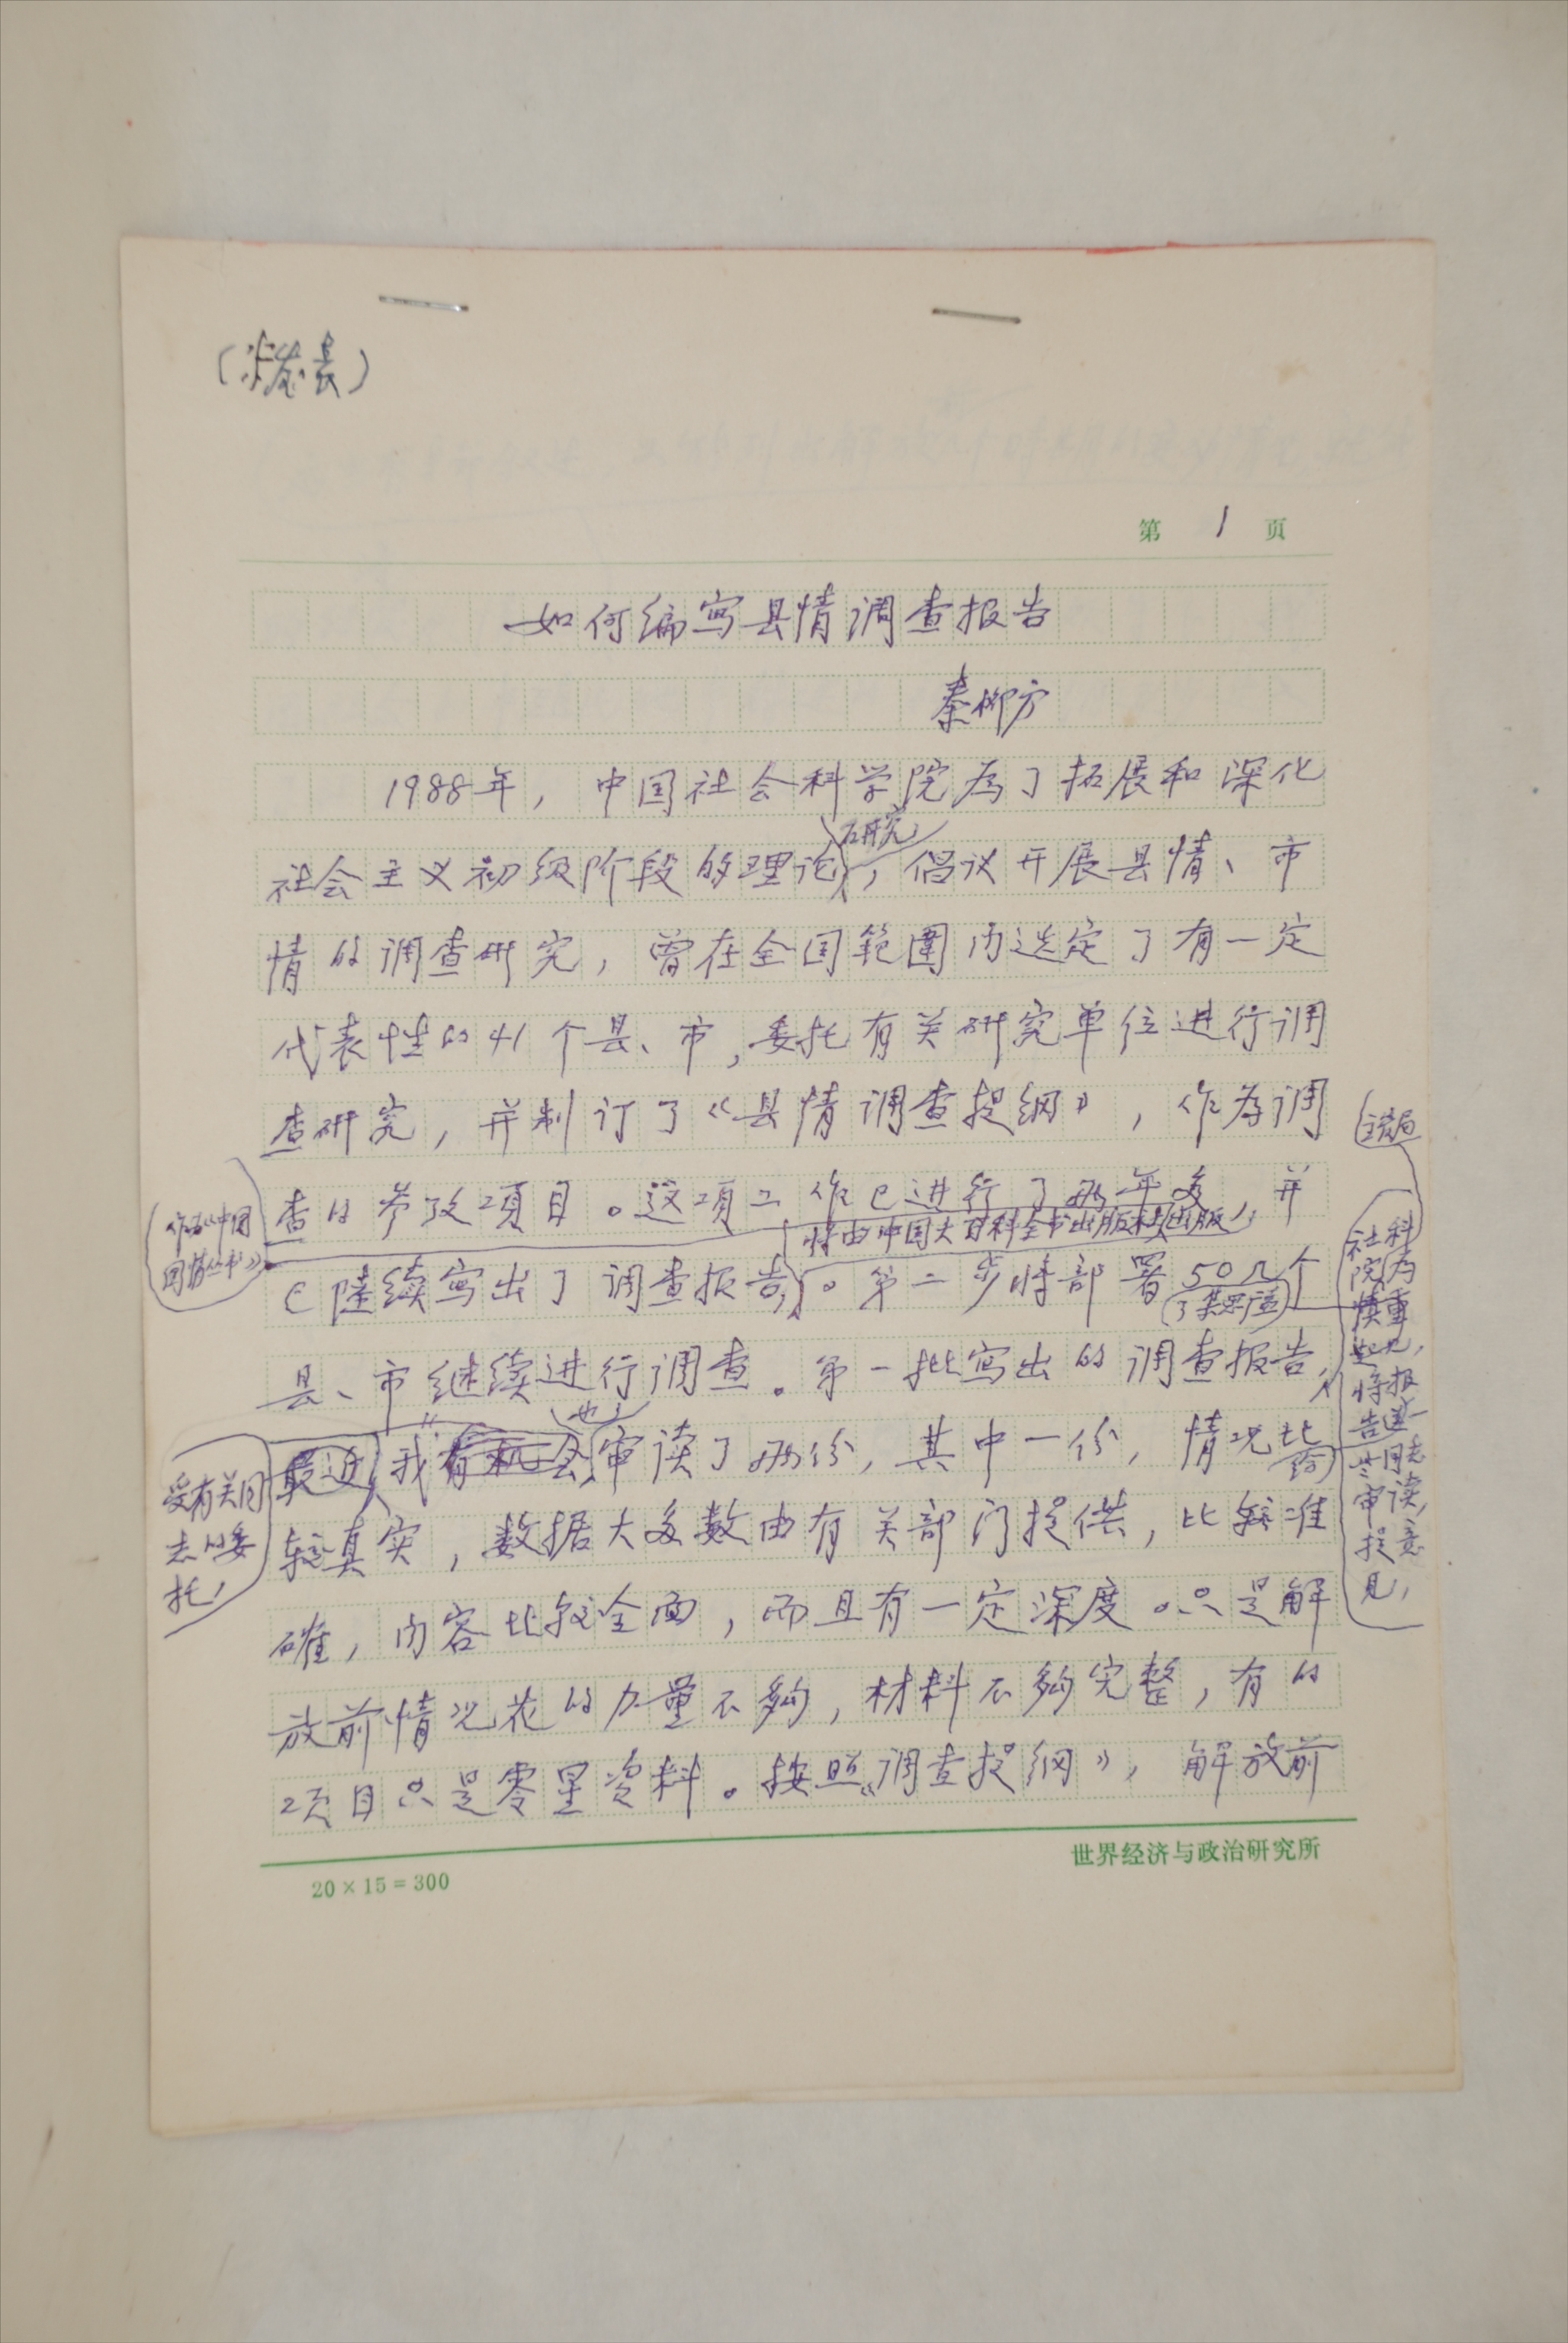 第 1 页
如何编写县情调查报告
秦柳方
1988年，中国社会科学院为了拓展和深化
研究
社会主义初级阶段的理论，倡议开展县情、市
情的调查研究，曾在全国範圍内选定了有一定
代表性的41个县、市，委托有关研究单位进行调
查研究，并制订了《县情调查提纲》，作为调
查的参考项目。这项工作已进行了两年多，并
将由中国大百科全书出版社出版，
作为《中国
国情丛书》
已陆续写出了调查报告。第二步将部署50几个
县、市继续进行调查。第一批写出的调查报告，
社科院为
慎重起见，
将报告送一
些同志
审读，
提意见，
受有关同
志的委
托，
最近我有机会审读了两份，其中一份，情况比
也
较真实，数据大多数由有关部门提供，比较准
确，内容比较全面，而且有一定深度。只是解
放前情况花的力量不够，材料不够完整，有的
项目只是零星资料。按照《调查提纲》，解放前
20×15=300
世界经济与政治研究所